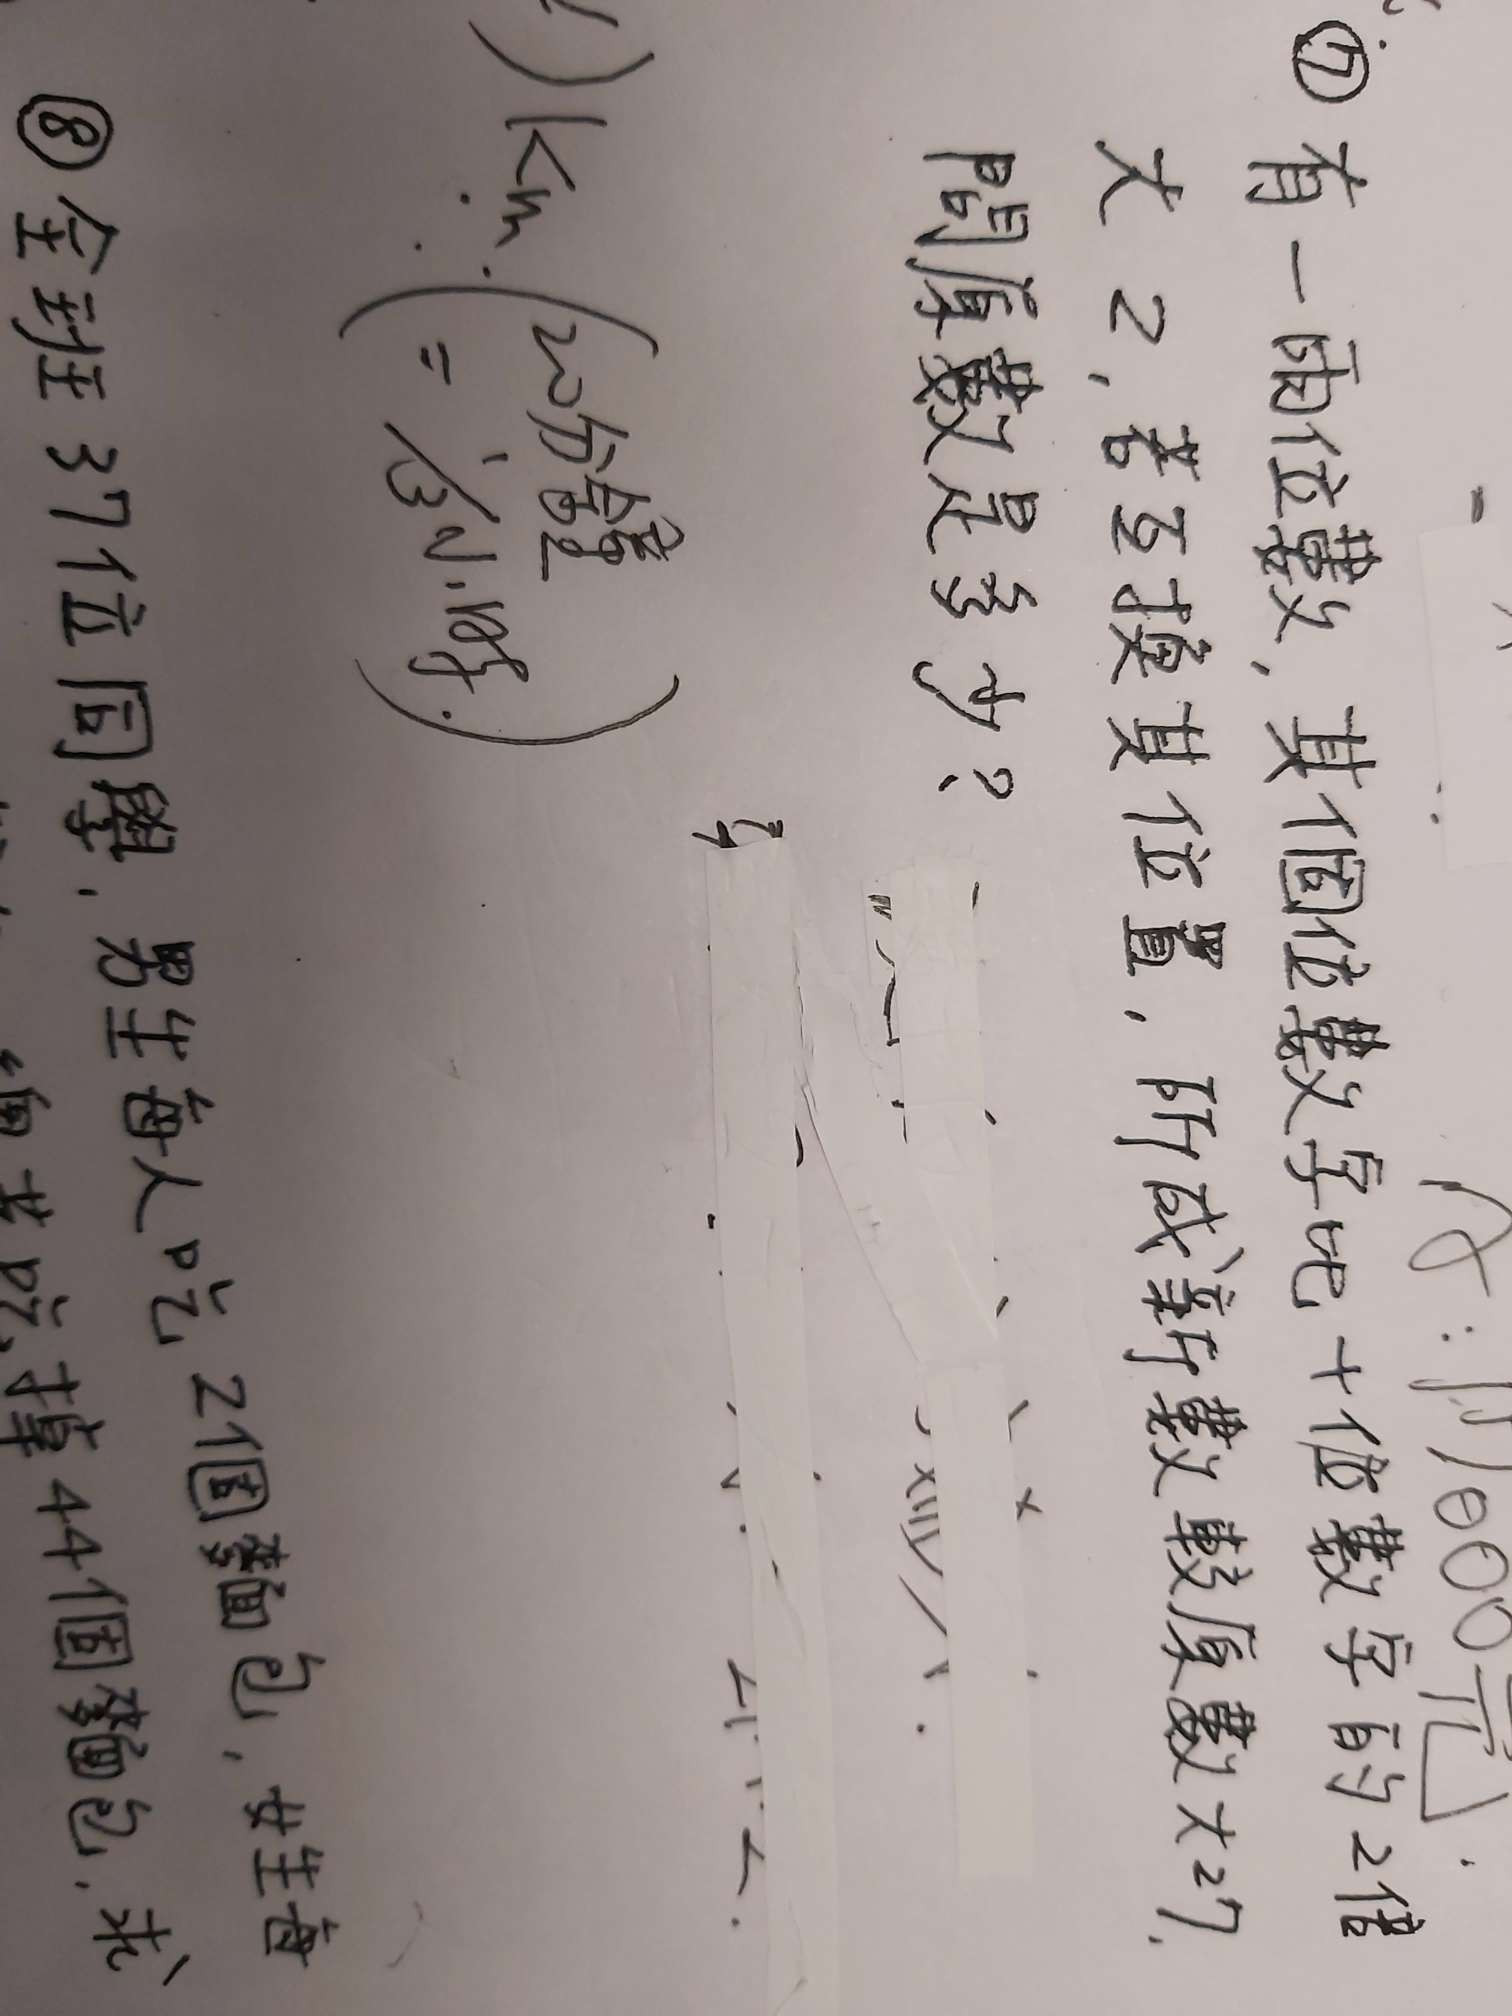 ⑦ 有一兩位數，其個位數字比十位數字的2倍
大2，若互換其位置，所成新數較原數大27，
問原數是多少？
) km. (20分鐘
= 1/3小時)
⑧ 全班37位同學，男生每人吃2個麵包，女生每
吃掉44個麵包，求